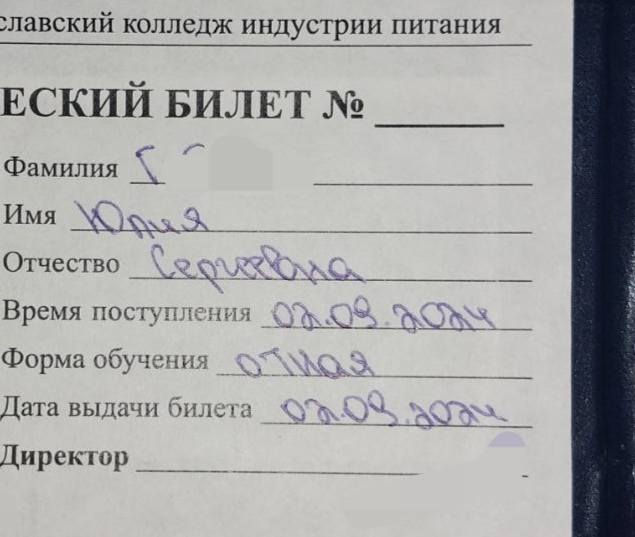 славский колледж индустрии питания
ЕСКИЙ БИЛЕТ №
Фамилия
Имя Юлия
Отчество Сергеевна
Время поступления 02.09.2024
Форма обучения очная
Дата выдачи билета 02.09.2024
Директор